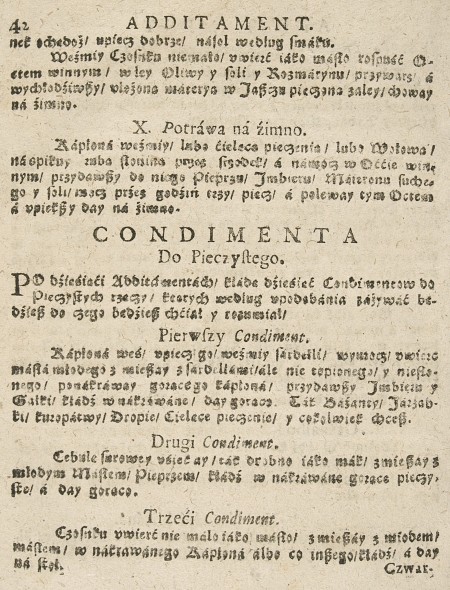 42 ADDITAMENT.
nek ochędoż/ upiecz dobrze/ násol według smáku.
Weźmiy Czosnku niemáło/ uwierć iáko másło rospuść O-
etem winnym/ wley Oliwy y soli y Rozmárynu/ przywarz/ á
wychłodźiwßy/ włożoną máteryą w Jaßcz pieczoną záley/ choway
ná źimno.
X. Potráwa ná źimno.
Kápłoná weźmiy/ lubo ćielęcą pieczenią/ lubo Wołową/
náspikuy grubą słoniną przez szrodek/ á námocz w Occie win-
nym/ przydawßy do niego Pieprzu/ Jmbieru/ Máieranu suche-
go y soli/ mocz przez godźin trzy/ piecz/ á poleway tym Octem
á upiekßy day ná źimno.
CONDIMENTA
Do Pieczystego.
PO dźieśiąći Additámentách/ kłádę dźieśięć Condimentow do
Pieczystych rzeczy/ ktorych według upodobánia záżywáć bę-
dźieß do czego będźieß chćiał y rozumiał/
Pierwszy Condiment.
Kápłoná weś/ upiecz go/ weźmiy sárdelli/ wymocz/ uwierć
másłá młodego zmießay z sárdellámi/ ále nie topionego/ y niesło-
nego/ ponákráway gorącego kápłoná/ przydawßy Jmbieru y
Gałki/ kłádź w nákráwáne/ day gorąco. Ták Báżanty/ Jarząb-
ki/ kuropátwy/ Dropie/ Cielęce pieczenie/ y cokolwiek chceß.
Drugi Condiment.
Cebule surowey usiekay/ ták drobno iáko mák/ zmießay z
młodym Másłem/ Pieprzem/ kłádź w nákráwáne gorące pieczy-
ste/ á day gorąco.
Trzeći Condiment.
Czosnku uwierć nie máło iáko másło/ zmießay z miodem/
másłem/ w nákráwánego Kápłoná álbo co inßego/ kłádź/ á day
ná stoł.
Czwar-